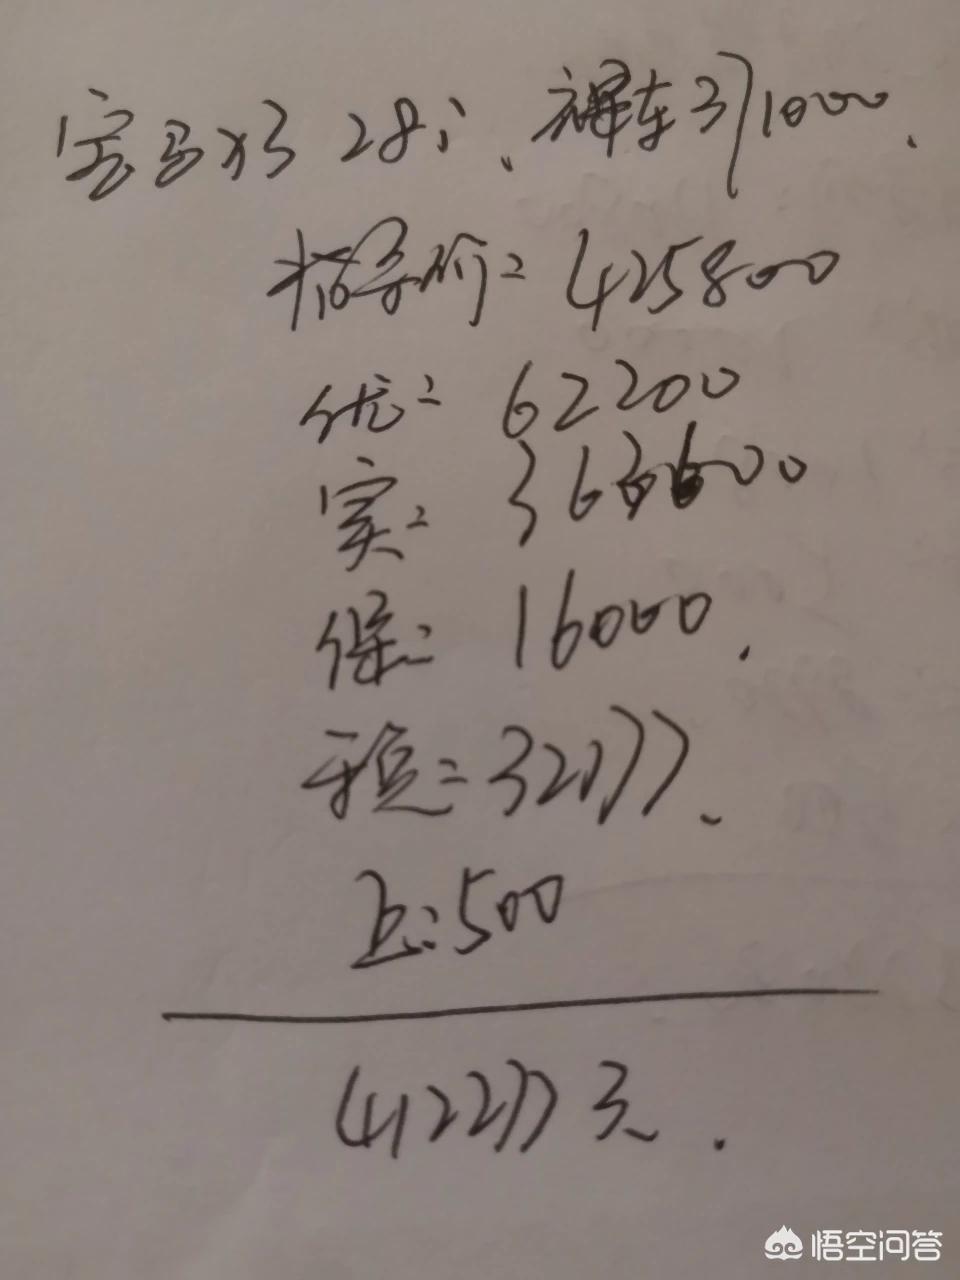 宝马X3 28i、裸车371000.
指导价=425800
优=62200
实=363600
保=16000.
税=32177、
上:500
412277元.
悟空问答